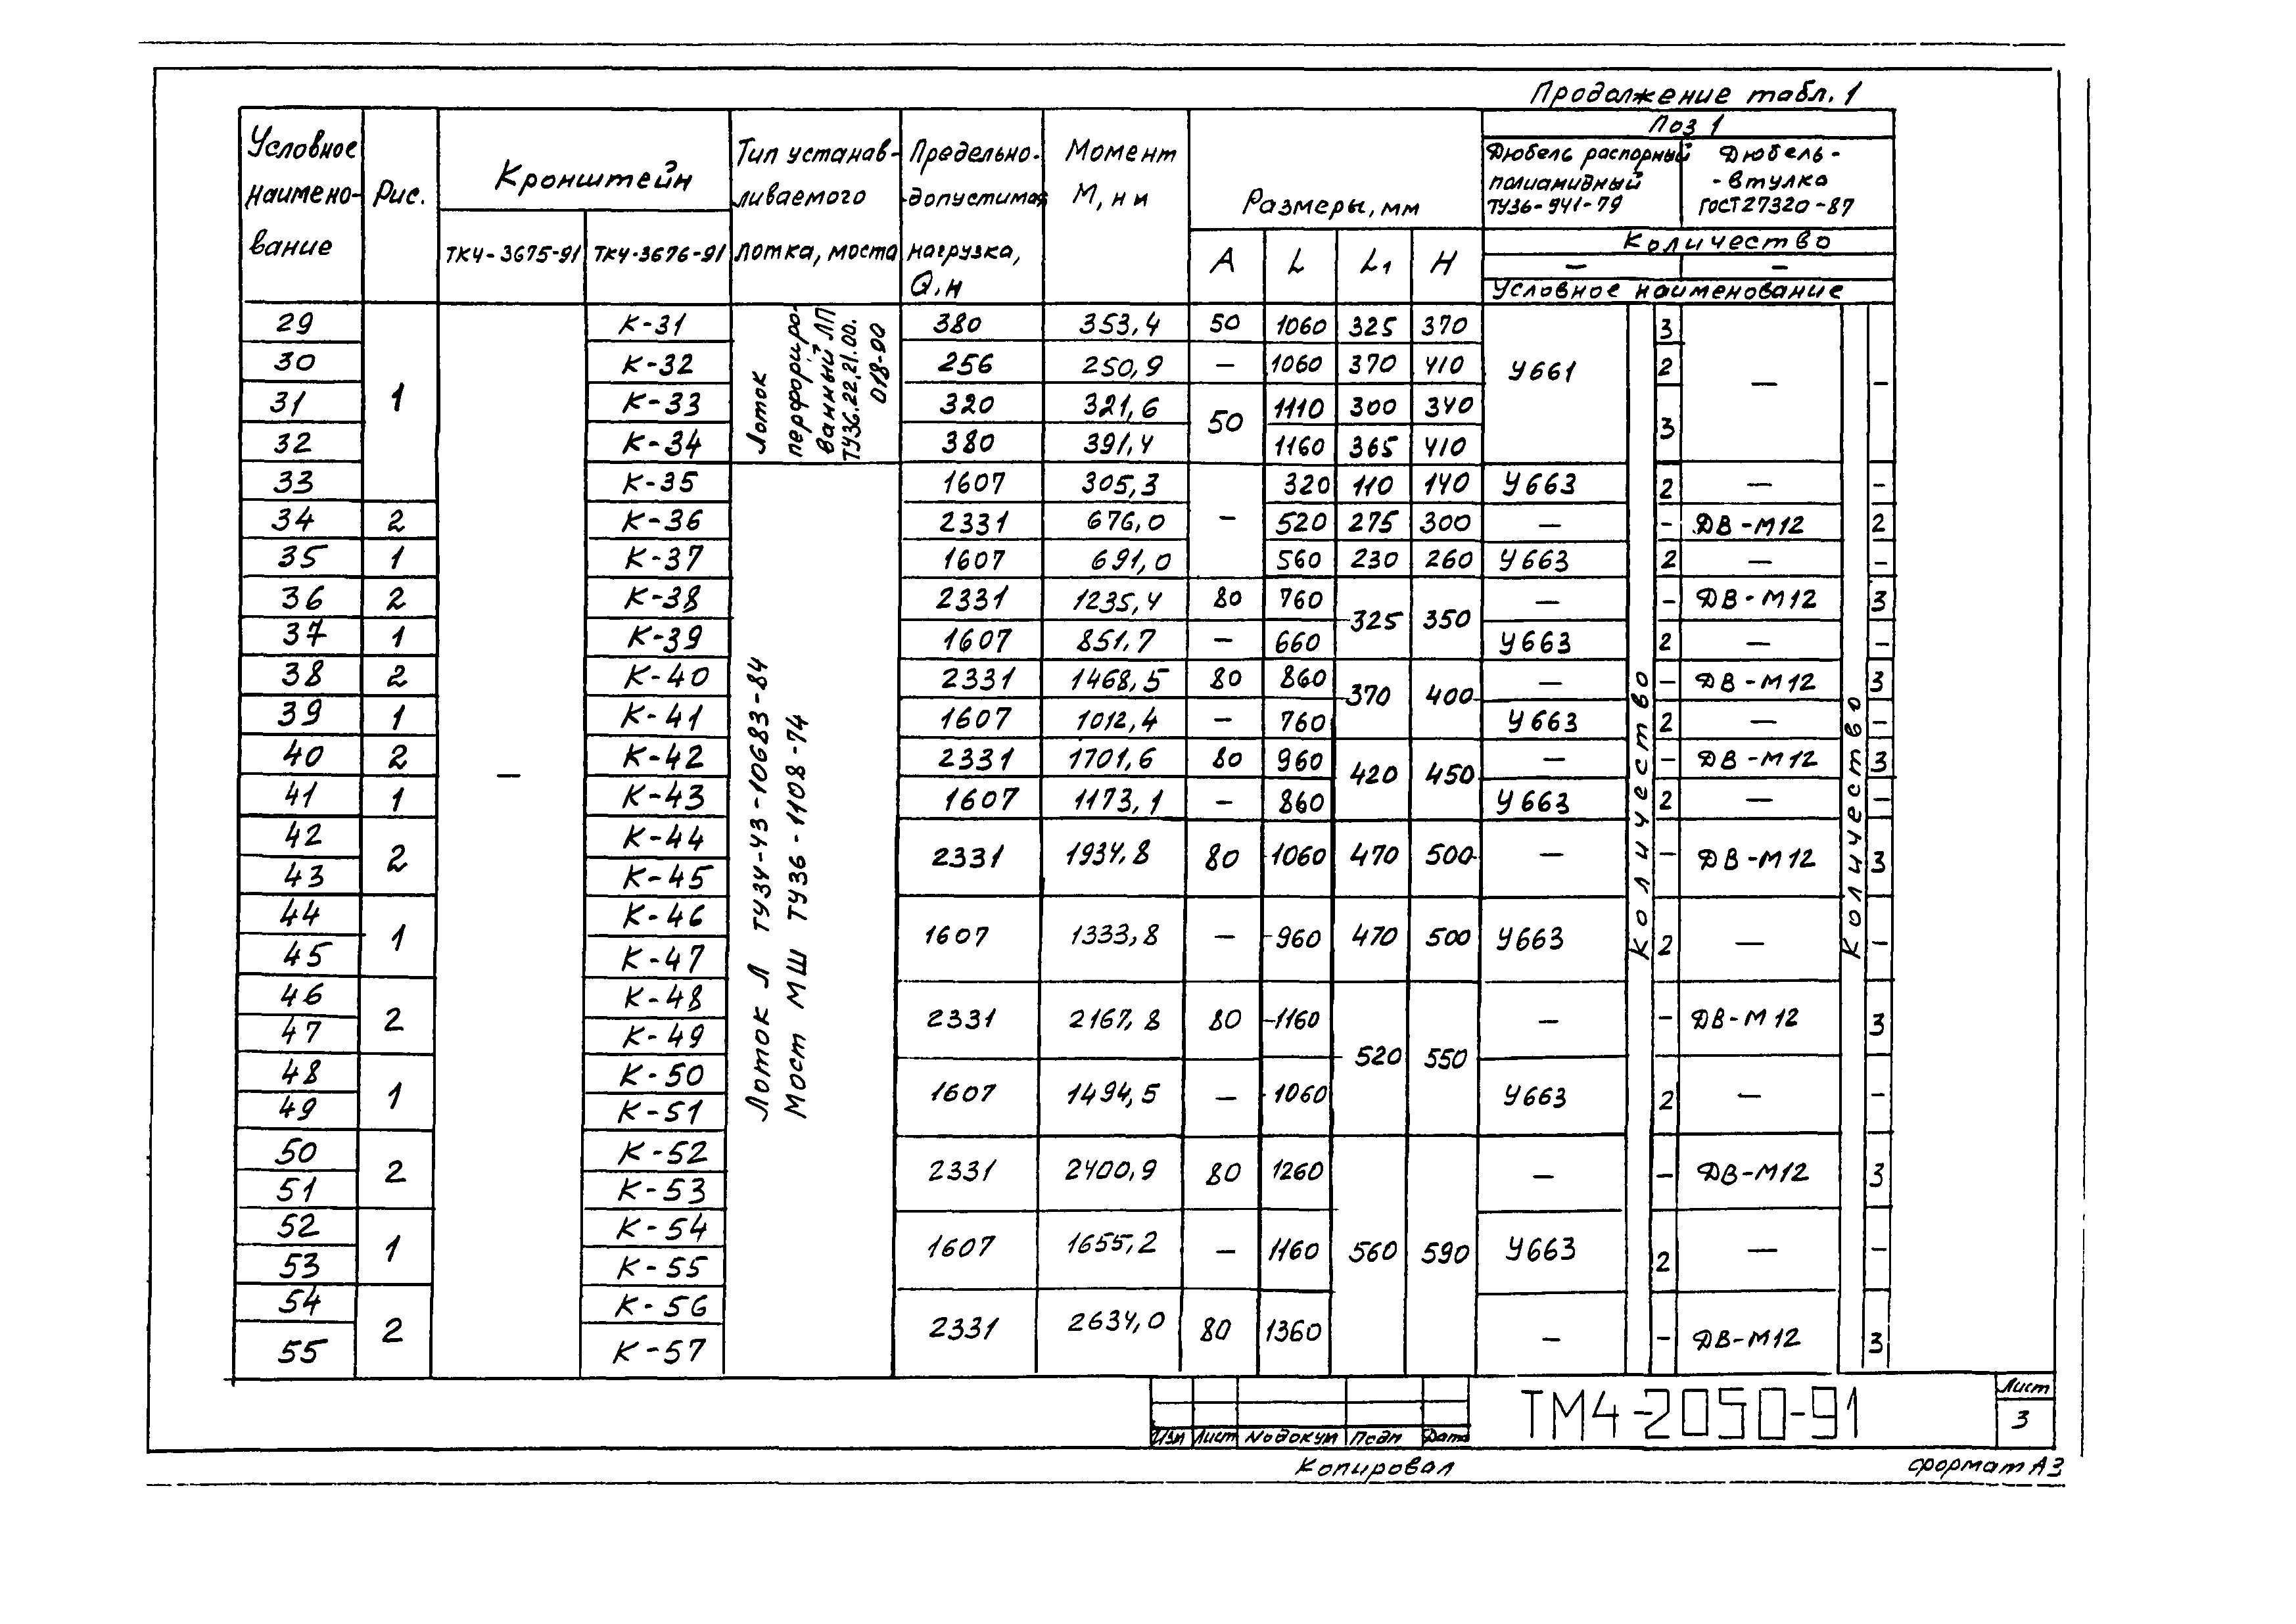 Продолжение табл. 1
Условное наимено- вание
Рис.
Кронштейн
ТК4-3675-91
ТК4-3676-91
Тип устанав- ливаемого лотка, моста
Предельно- допустимая нагрузка, Q, н
Момент М, н м
Размеры, мм
A L L1 H
Поз 1
Дюбель распорный полиамидный ТУ36-941-79
Дюбель- -втулка ГОСТ 27320-87
Количество
— —
Условное наименование
Лоток перфориро- ванный ЛП ТУ36.22.21.00. 018-90
Лоток Л ТУ34-43-10683-84
Мост МШ ТУ36-1108-74
Количество
Количество
—
29 1 К-31 380 353,4 50 1060 325 370 У661 3 — -
30 К-32 256 250,9 — 1060 370 410 2
31 К-33 320 321,6 50 1110 300 340 3
32 К-34 380 391,4 1160 365 410
33 К-35 1607 305,3 — 320 110 140 У663 2 — -
34 2 К-36 2331 676,0 520 275 300 — - ДВ-М12 2
35 1 К-37 1607 691,0 560 230 260 У663 2 — -
36 2 К-38 2331 1235,4 80 760 325 350 — - ДВ-М12 3
37 1 К-39 1607 851,7 — 660 У663 2 — -
38 2 К-40 2331 1468,5 80 860 370 400 — - ДВ-М12 3
39 1 К-41 1607 1012,4 — 760 У663 2 — -
40 2 К-42 2331 1701,6 80 960 420 450 — - ДВ-М12 3
41 1 К-43 1607 1173,1 — 860 У663 2 — -
42 2 К-44 2331 1934,8 80 1060 470 500 — - ДВ-М12 3
43 К-45
44 1 К-46 1607 1333,8 — 960 470 500 У663 2 — -
45 К-47
46 2 К-48 2331 2167,8 80 1160 520 550 — - ДВ-М12 3
47 К-49
48 1 К-50 1607 1494,5 — 1060 У663 2 — -
49 К-51
50 2 К-52 2331 2400,9 80 1260 560 590 — - ДВ-М12 3
51 К-53
52 1 К-54 1607 1655,2 — 1160 У663 2 — -
53 К-55
54 2 К-56 2331 2634,0 80 1360 — - ДВ-М12 3
55 К-57
Изм Лист № докум Подп Дата
ТМ4-2050-91
Лист
3
Копировал
формат А3